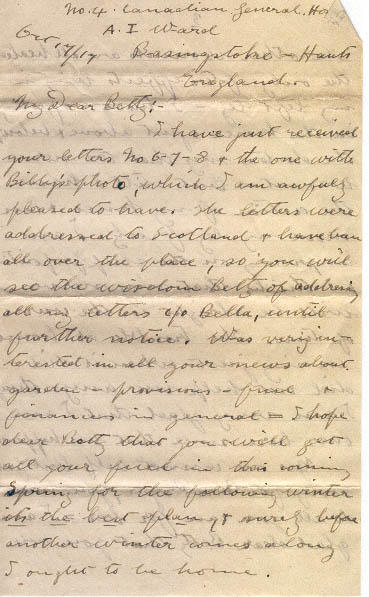 No. 4. Canadian General. Hos
A. I Ward
Oct, 17/17 Basingstoke - Hants
England.
My Dear Betty:-
I have just received
your letters No 6-7-8 & the one with
Bibby's photo, which I am awfully
pleased to have. The letters were
addressed to Scotland & have been
all over the place, so you will
see the wisdom Betty of addressing
all my letters c/o Bella, until
further notice. Was very in-
terested in all your news about
garden - provisions - fuel &
finances in general = I hope
dear Betty that you will get
all your fuel in this coming
Spring for the following winter
its the best plan, & surely before
another winter comes along
I ought to be home.